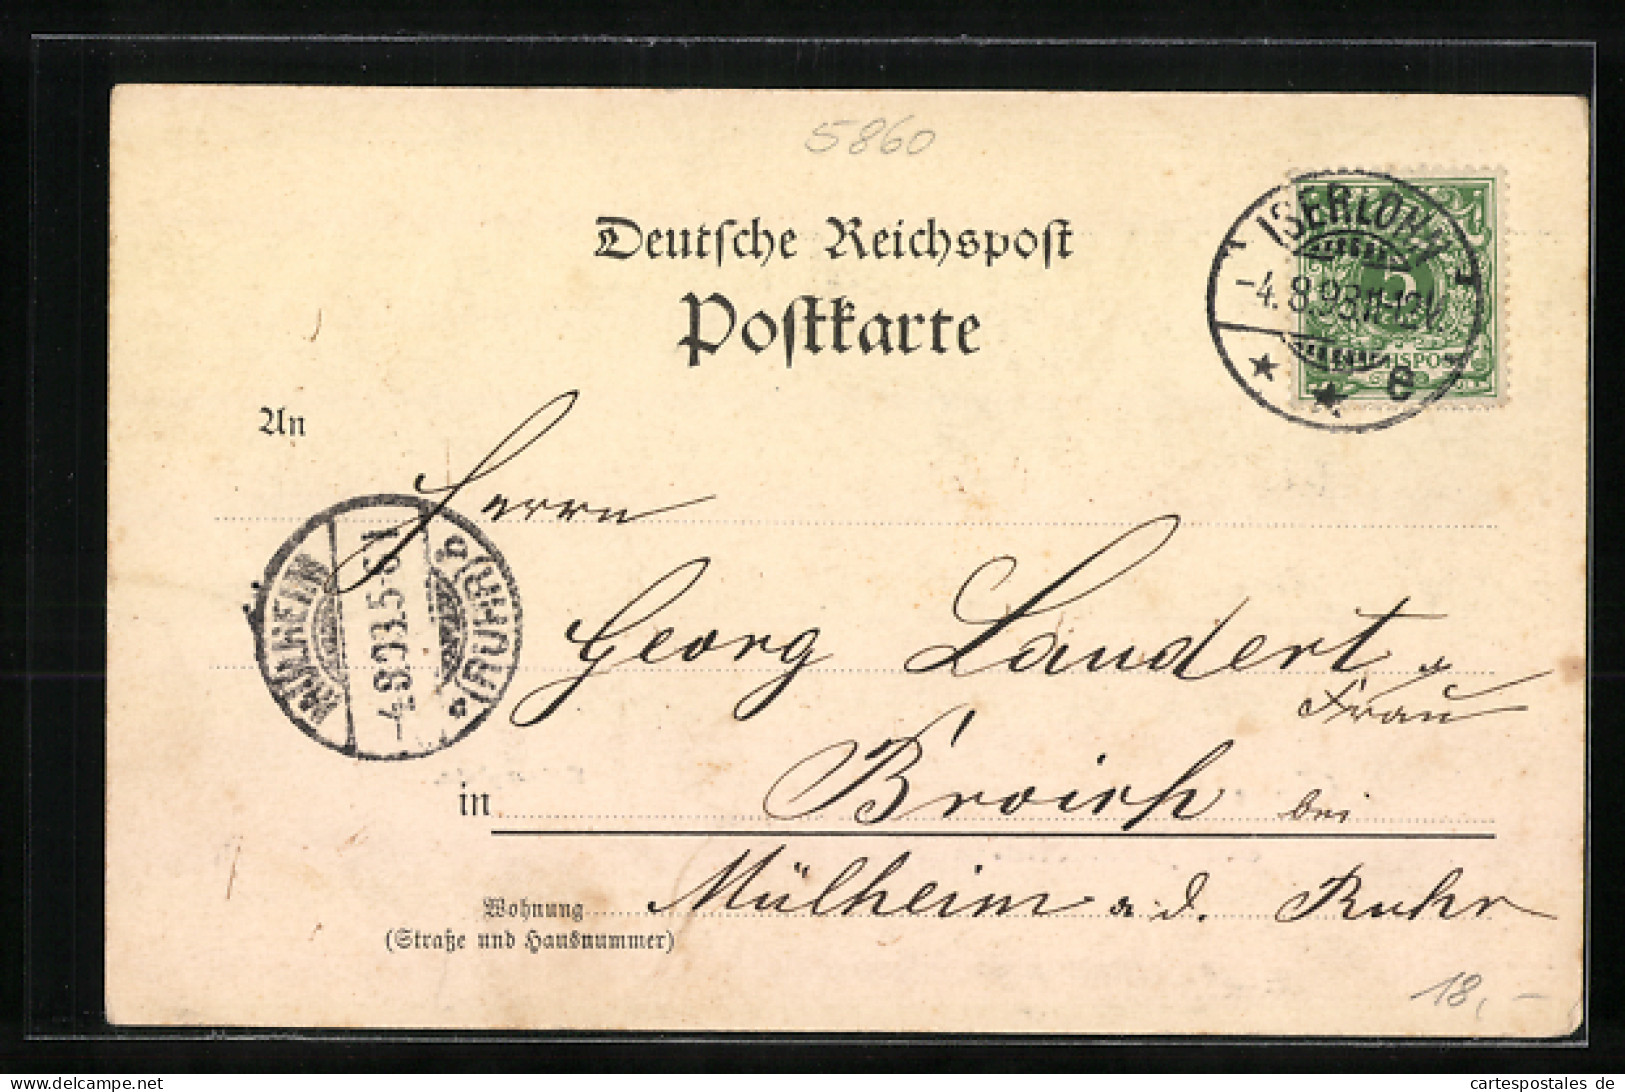 5860
Deutsche Reichspost
Postkarte
ISERLOHN
-4.8.93.11-12V.
* * e
5
REICHSPOST
An
Herrn
MÜLHEIM
-4.8.93.5-6
(RUHR)
Georg Laudert u
Frau
in Broich bei
Mülheim a. d. Ruhr
Wohnung
(Straße und Hausnummer)
18,-
cartespostales de
www.delcampe.net